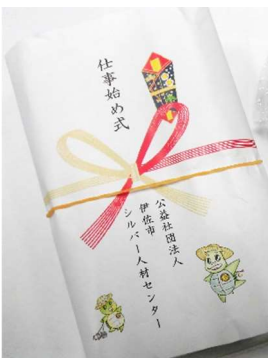 仕事始め式
公益社団法人
伊佐市
シルバー人材センター